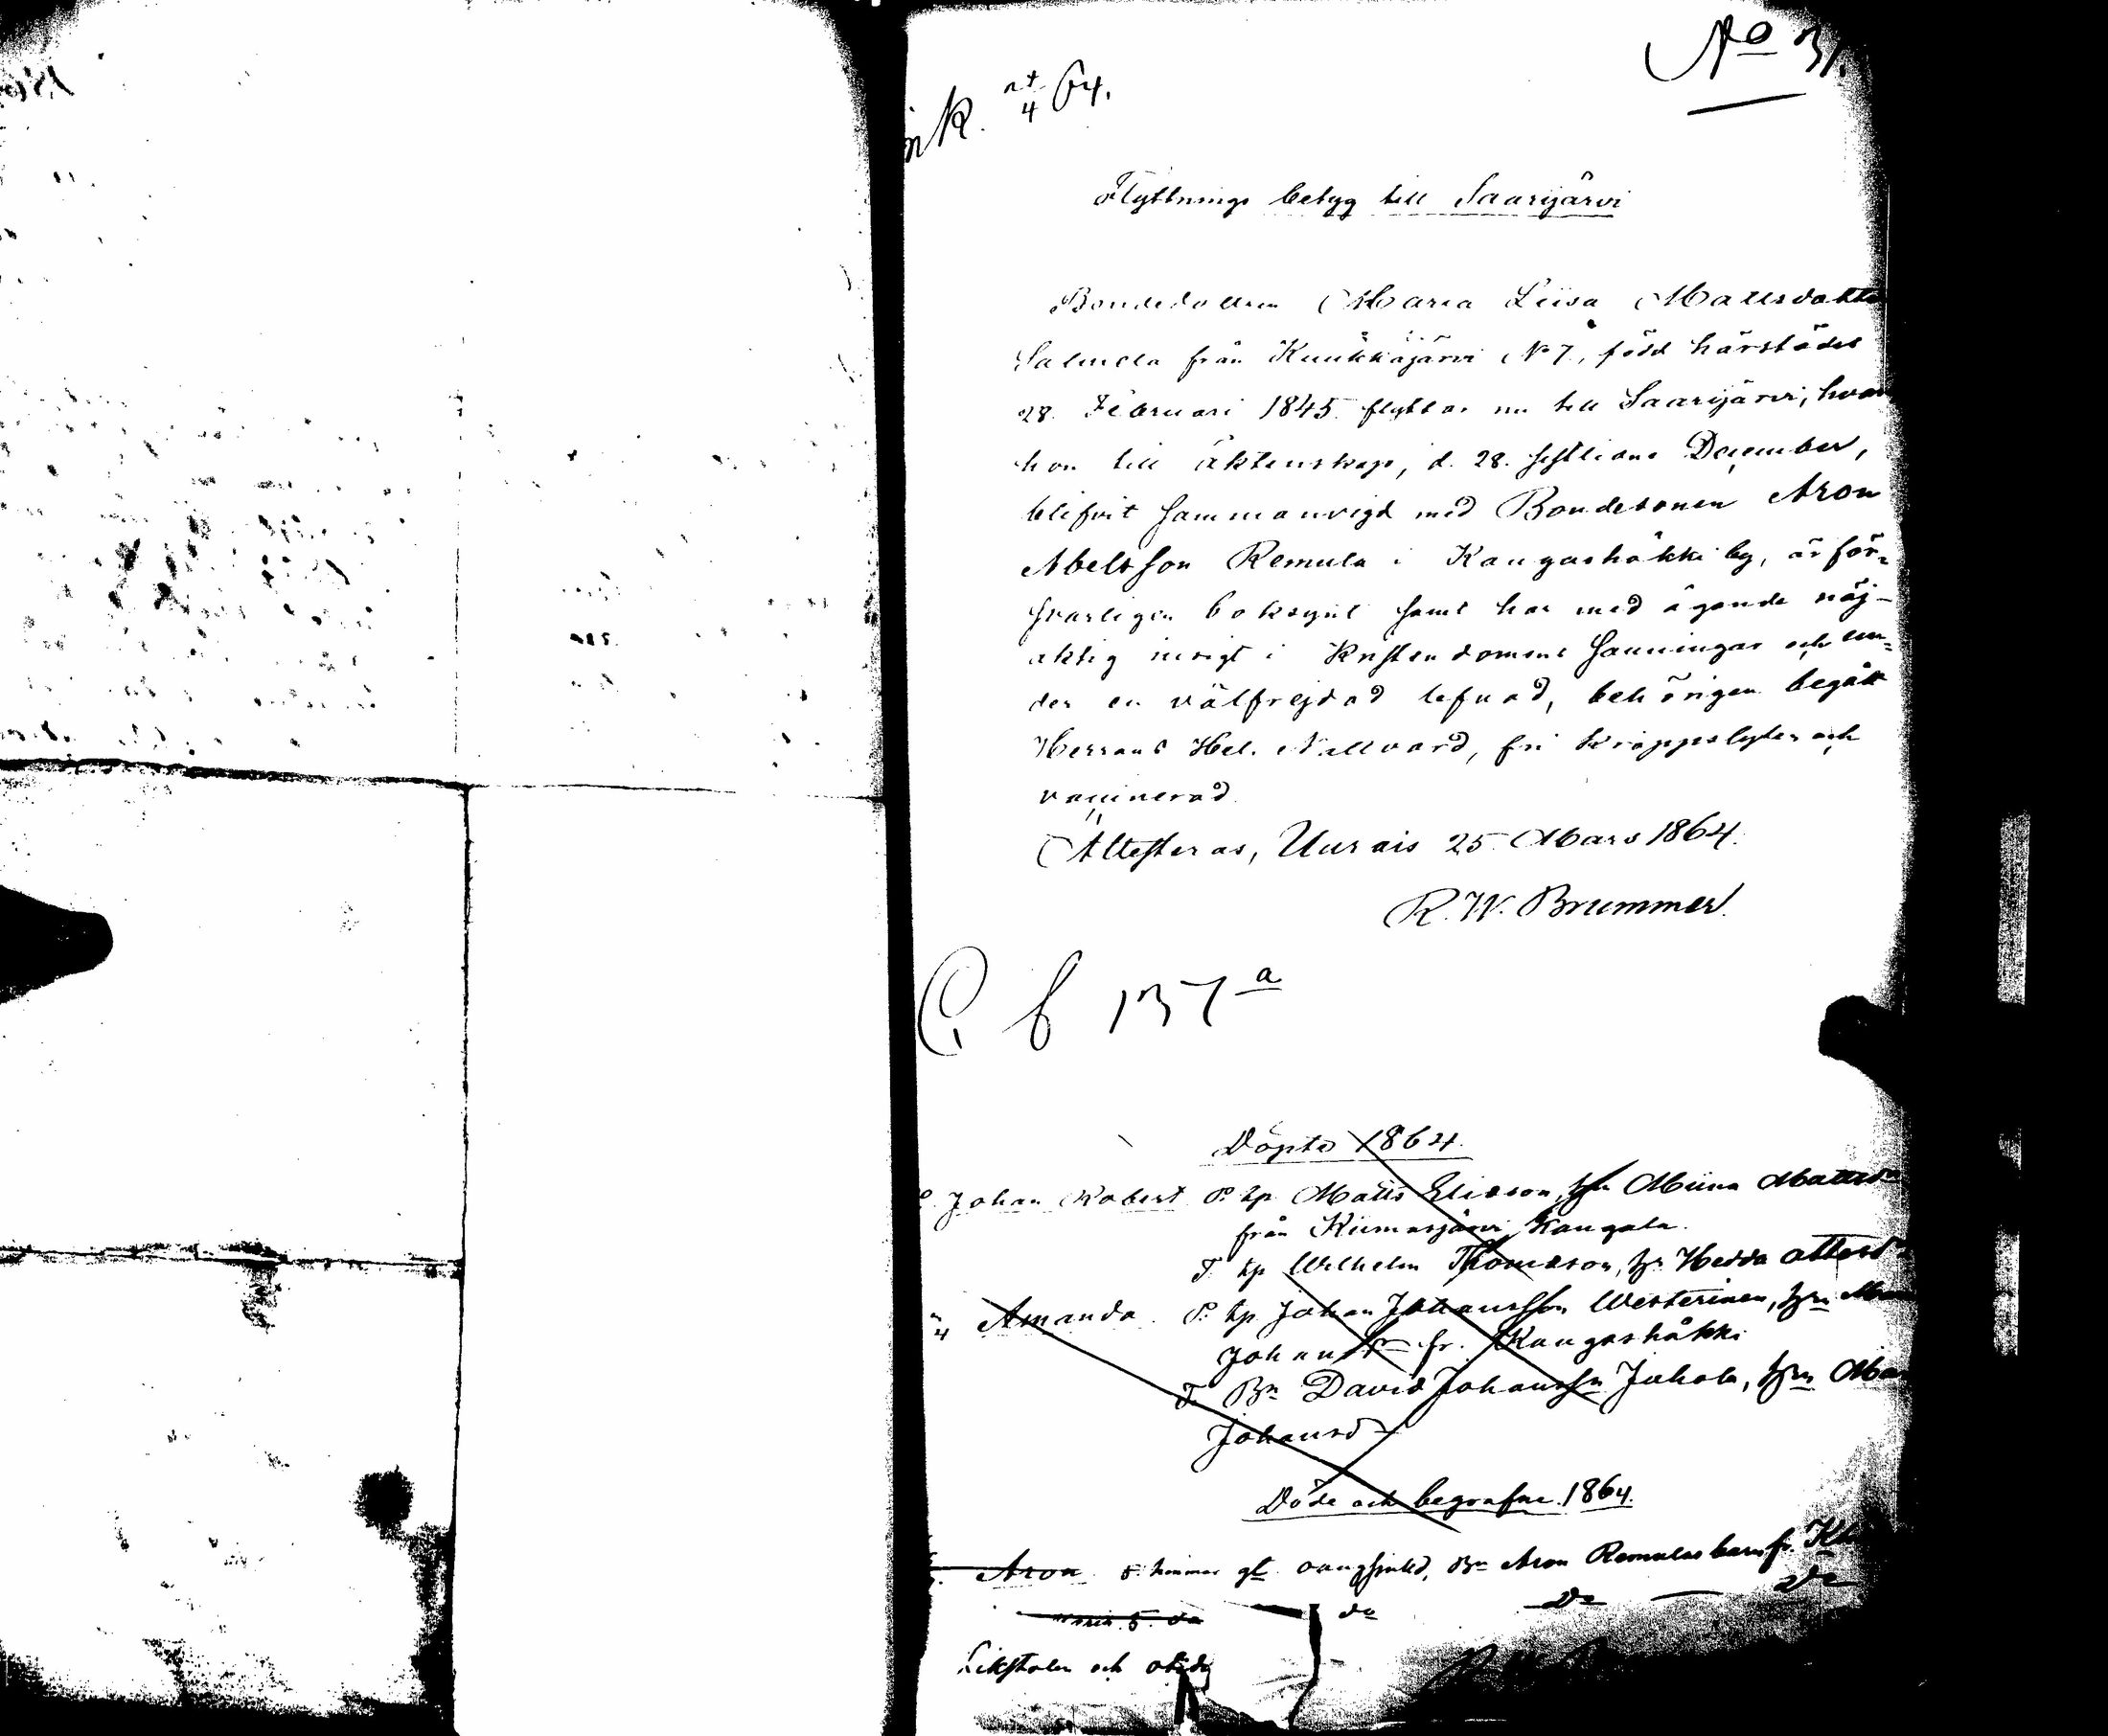 No 31.
ink. 4 64.
Flyttnings betyg till Saarijärvi
Bondedottren Maria Liisa Mattsdotte
Salmela från Kuukkajärvi No 7, född härstädes
28. Februari 1845 flyttar nu till Saarijärvi, hvar
hon till äktenskap, d. 28. sistlidne December,
blifvit sammanvigd med Bondesonen Aron
Abelsson Remula i Kangashäkki by, är för-
svarligen boksynt samt har med ägande nöj-
aktig insigt i Kristendomens Sanningar och un-
der en välfrejdad lefnad, behörigen begått
Herrans Hel. Nattvard, fri kroppslyten och
vaccinerad.
Attesteras, Uurais 25 Mars 1864.
R. W. Brummer
C. f 137 a
Döpta 1864.
Johan Robert P. Hp Matts Eliasson, Miina Mattsd
från Kiimasjärvi Kangala.
F. Hp Wilhelm Thomasson, Hedda
4 Amanda. P. Hp Johan Johansson Westerinen,
Johansd fr. Kangashäkki
F. Bn David Johansson Juhola,
Johansd
Döde och begrafne 1864.
Aron 5 timmar gl Bn Aron Remulas barn fr.
5 do do Do Do
Likstolen och